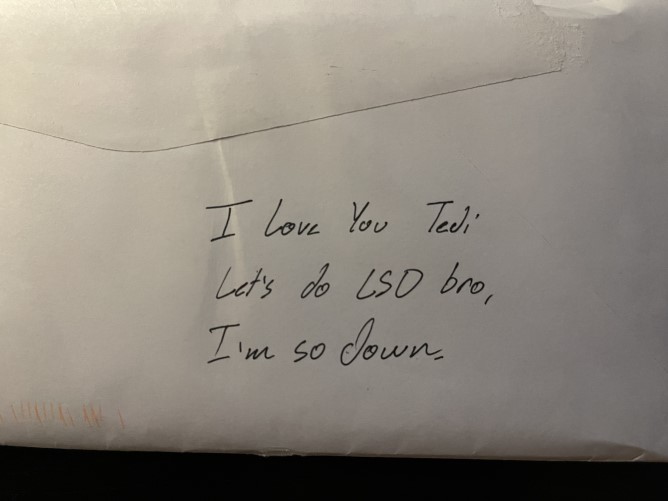 I Love You Tedi
Let's do LSD bro,
I'm so down.